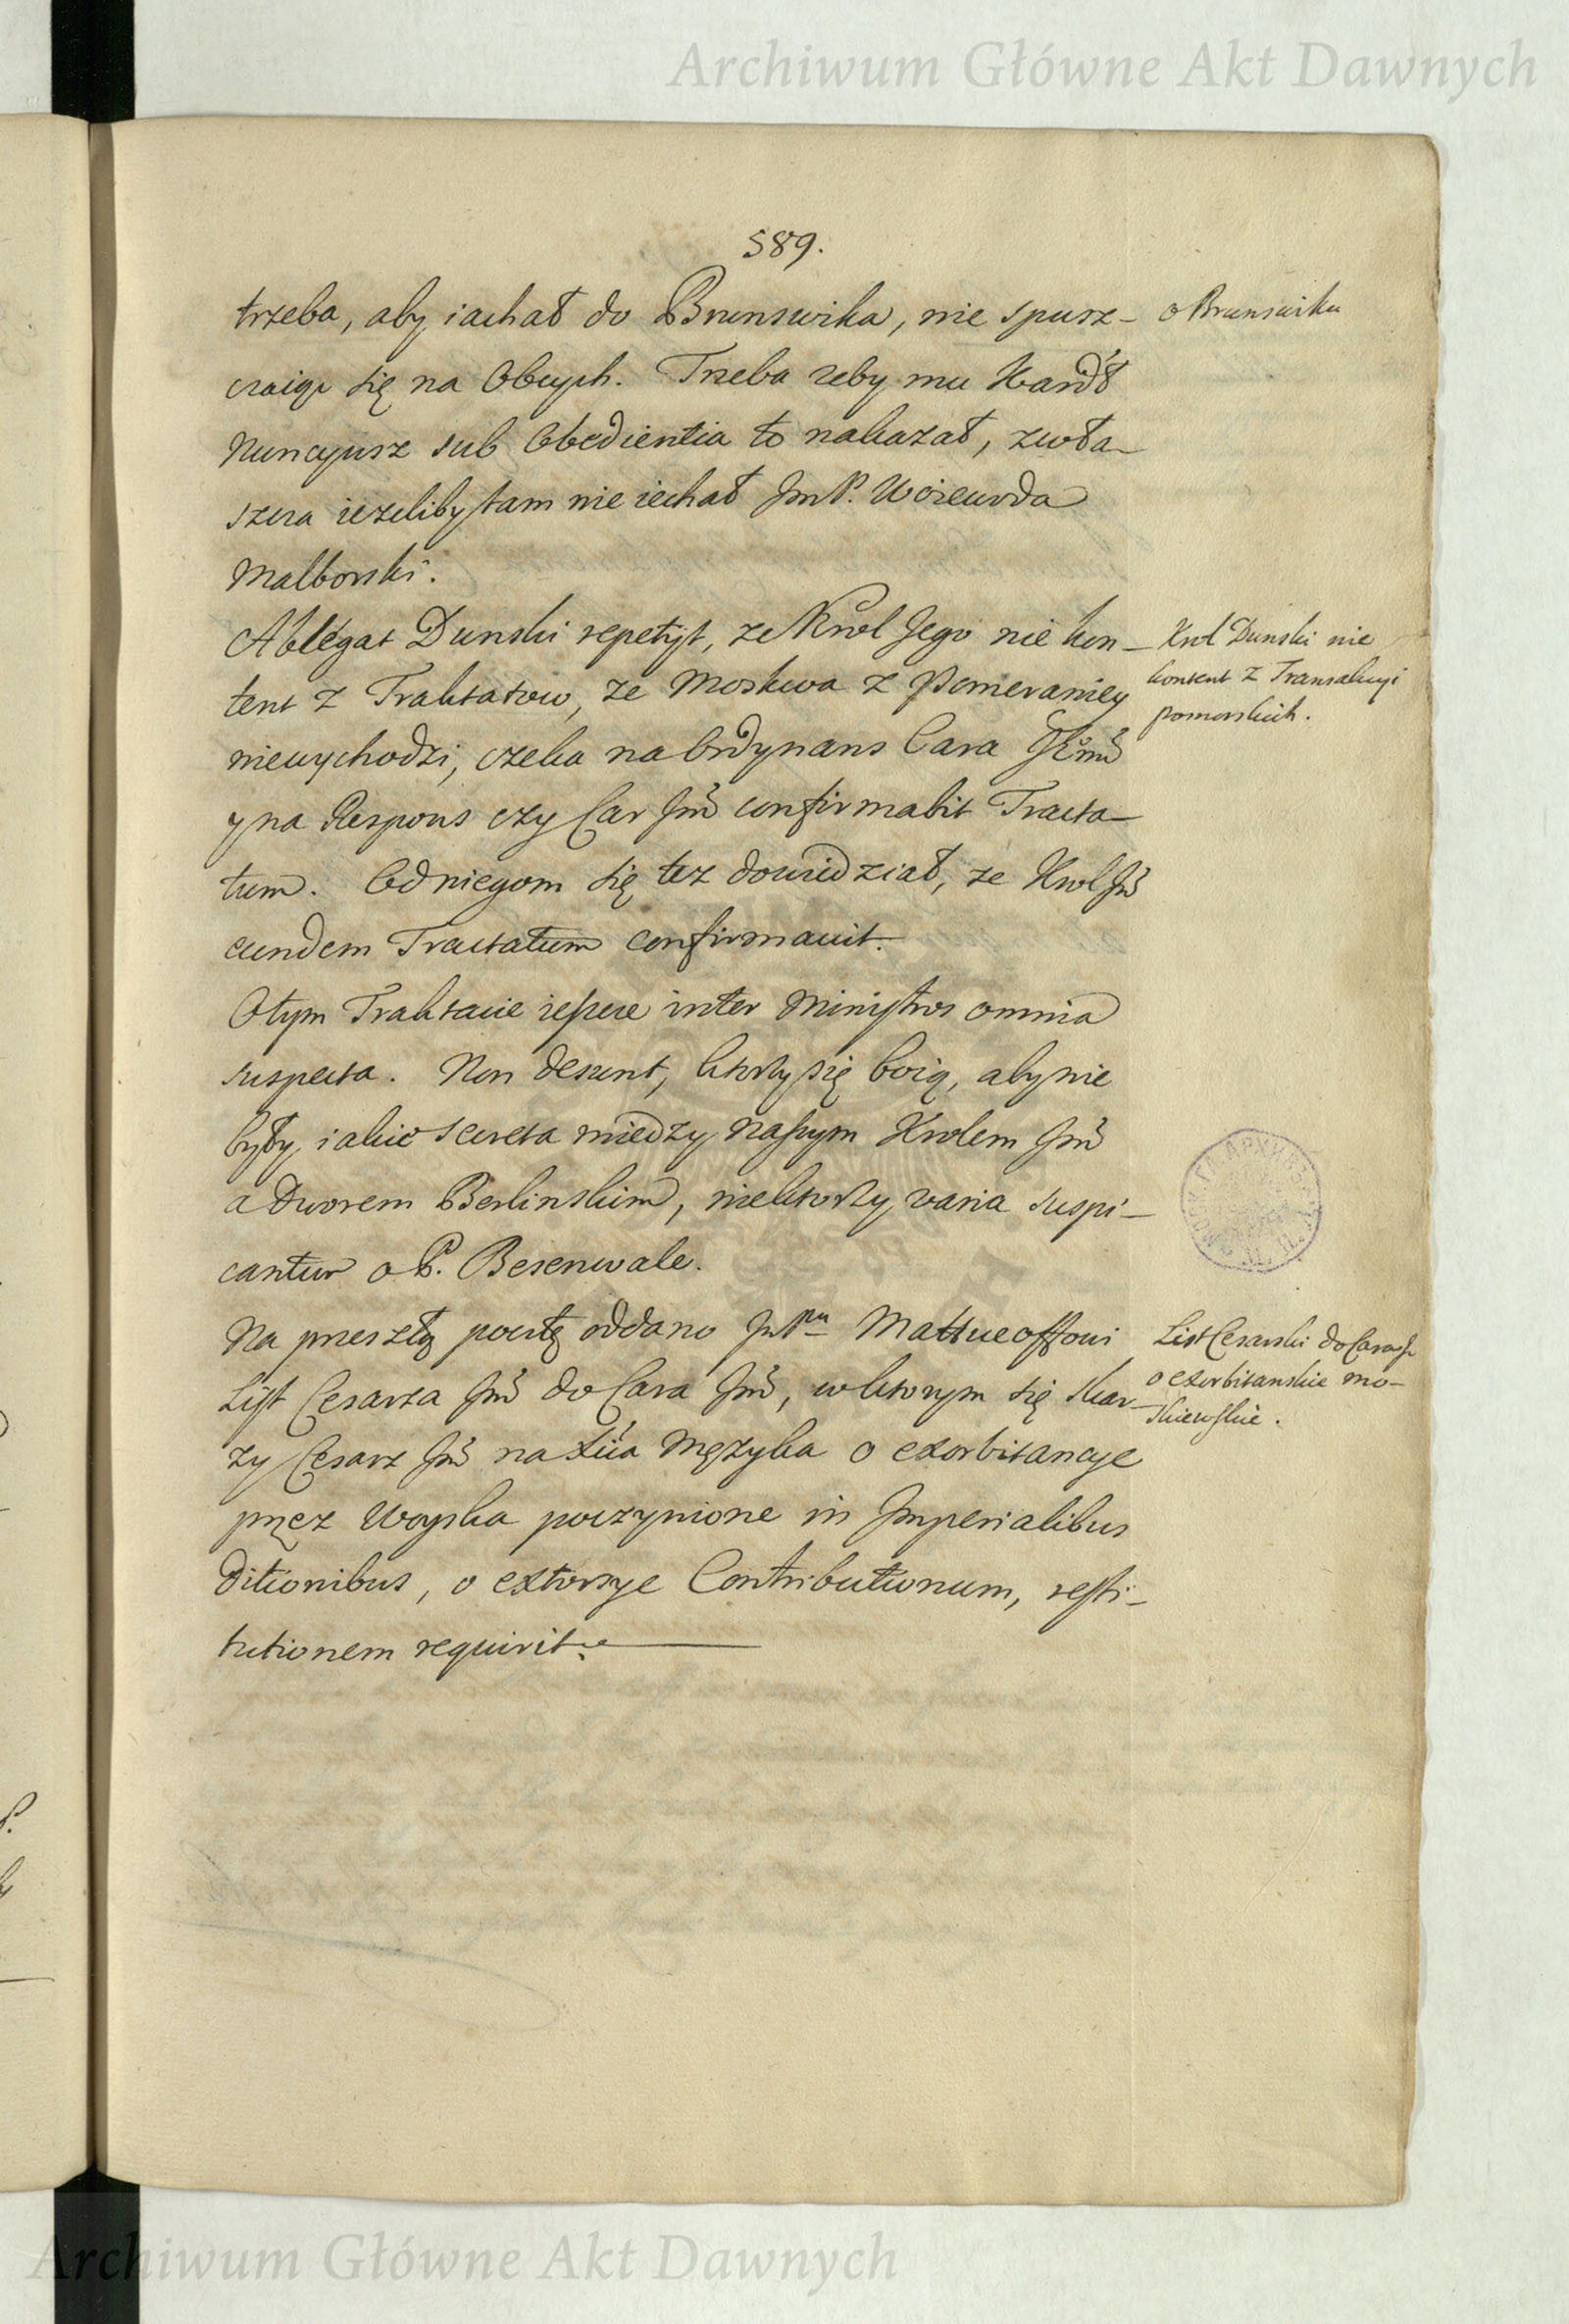 Archiwum Główne Akt Dawnych
589.
trzeba, aby iachał do Brunswika, nie spusz-
czaiąc się na Obcych. Trzeba zeby mu Xardł
Nuncyusz sub Obedientia to nakazał, zwła-
szcza iezeliby tam nie iechał JmP. Woiewoda
Malborski.
o Brunswiku
Ablegat Dunski repetyt, ze Krol Jego nie kon-
tent z Traktatow, ze Moskwa z Pomeraniey
niewychodzi, czeka na Ordynans Cara
y na Respons czy Car Jmć confirmabit Tracta-
tum. Od niegom się tez dowiedział, ze Krol Jmć
eundem Tractatum confirmavit.
Krol Dunski nie
kontent z Transakcyi
pomorskich.
O tym Traktacie ieszcze inter Ministros omnia
suspecta. Non desunt, ktorzy się boią, aby nie
były iakie secreta między naszym Krolem Jmć
a Dworem Berlinskim, niektorzy varia suspi-
cantur o P. Besenwale.
Na przeszłą pocztę oddano JmPnu Mattueoffowi
List Cesarza Jmć do Cara Jmć, w ktorym się skar-
zy Cesarz Jmć na Xcia Męzyka o exorbitancye
przez Woyska poczynione in Imperialibus
ditionibus, o extorsye Contributionum, resti-
tutionem requirit.
List Cesarski do Cara J
o exorbitanskie mo-
skiewskie.
Archiwum Główne Akt Dawnych